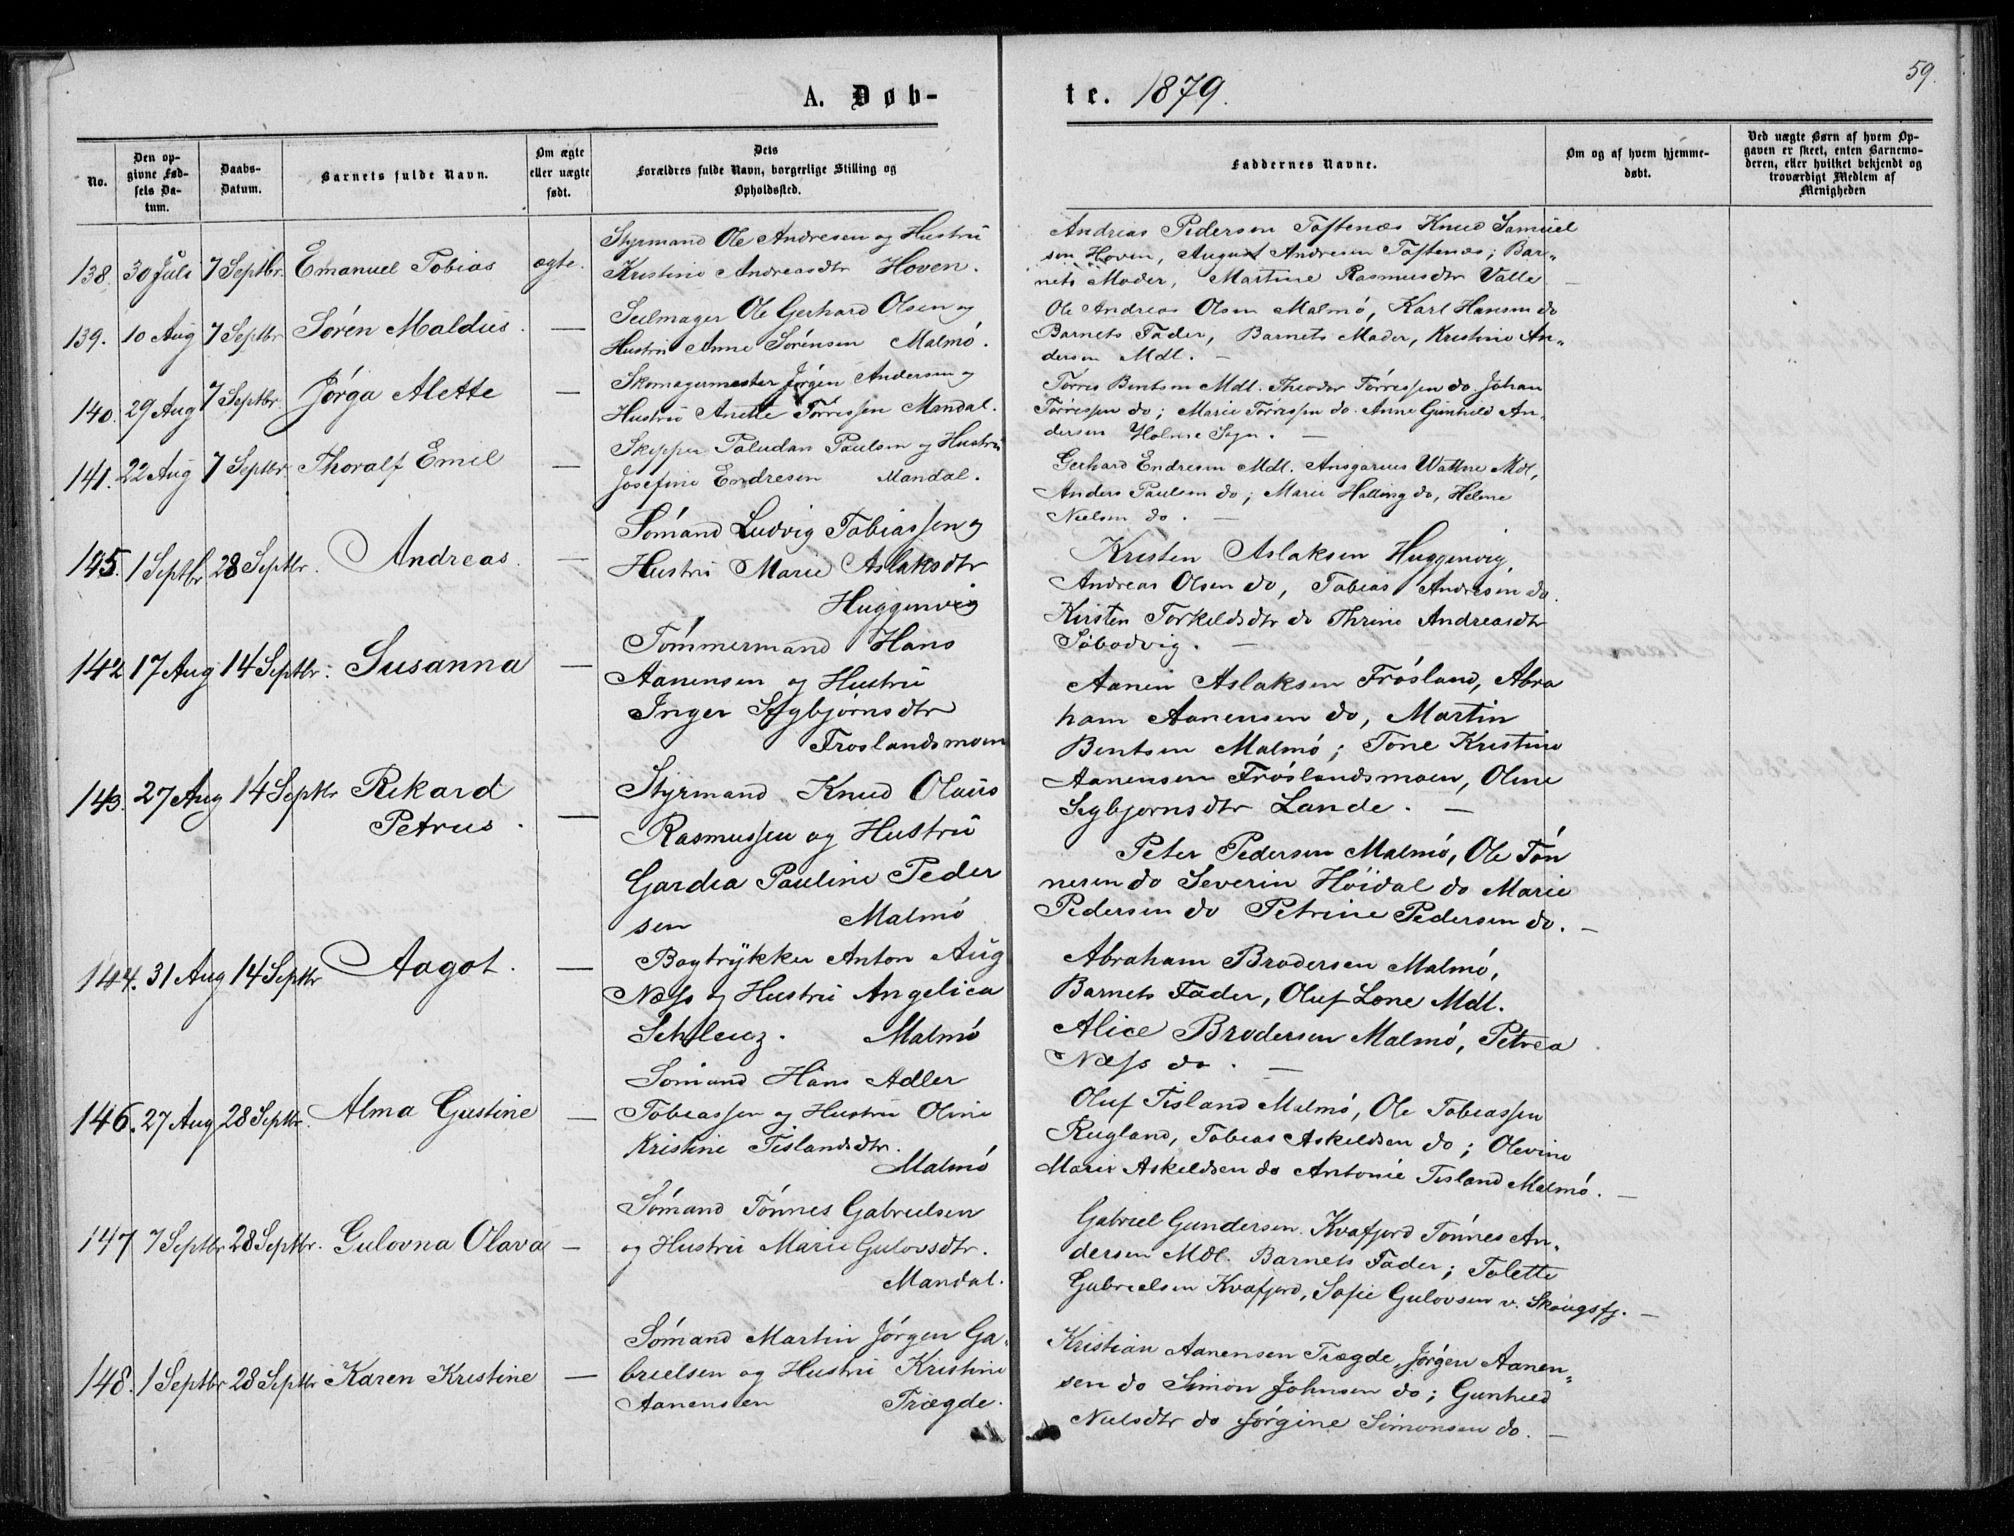 59.
A. Døb-
te. 1879.
No.
Den op-
givne Fød-
sels Da-
tum.
Daabs-
Datum.
Barnets fulde Navn.
Om ægte
eller uægte
født.
Dets
Forældres fulde Navn, borgerlige Stilling og
Opholdssted.
Faddernes Navne.
Om og af hvem hjemme-
døbt.
Ved uægte Børn af hvem Op-
gaven er skeet, enten Barnemo-
deren, eller hvilket bekjendt og
troværdigt Medlem af
Menigheden
138. 30 Juli 7 Septbr. Emanuel Tobias ægte.
Styrmand Ole Andresen og Hustru
Kristine Andreasdtr Hoven.
Andreas Pedersen Toftenæs Knud Samuel
sen Hoven, August Andresen Toftenæs; Bar„
nets Moder, Martine Rasmusdtr Valle —
139. 10 Aug 7 Septbr Sørén Maldus. —
Seilmager Ole Gerhard Olsen og
Hustru Anne Sørensen Malmø.
Ole Andreas Olsen Malmø, Karl Hansen do
Barnets Fader, Barnets Moder, Kristine An„
dersen Mdl. —
140. 29 Aug 7 Septbr. Jørga Alette —
Skomagermester Jørgen Andersen og
Hustru Anette Tørressen Mandal.
Torres Bentsen Mdl. Theodor Tørressen do. Johan
Tørressen do; Marie Tørressen do. Anne Gunhild An„
dersen Holme Sogn. —
141. 22 Aug 7 Septbr. Thoralf Emil —
Skipper Paludan Paulsen og Hustru
Josefine Endresen Mandal.
Gerhard Endresen Mdl. Ansgarius Wattne Mdl,
Anders Paulsen do; Marie Halling do, Helene
Nielsen do. —
145. 1 Septbr 28 Septbr. Andreas. —
Sømand Ludvig Tobiassen og
Hustru Marie Aslaksdtr
Huggenvig
Kristen Aslaksen Huggenvig,
Andreas Olsen do, Tobias Andresen do.
Kirsten Torkeldsdtr do Thrine Andreasdtr
Søbodvig. —
142 17 Aug 14 Septbr. Susanna —
Tømmermand Hans
Aanensen og Hustru
Inger Sigbjørnsdtr
Froslandsmoen
Aanen Aslaksen Frøsland, Abra
ham Aanensen do, Martin
Bentsen Malmø; Tone Kristine
Aanensen Frøslandsmoen, Oline
Sigbjornsdtr Lande. —
143. 27 Aug 14 Septbr Rikard
Petrus. —
Styrmand Knud Olaus
Rasmussen og Hustru
Gardea Pauline Peder
sen Malmø
Peter Pedersen Malmø, Ole Tøn
nesen do Severin Høidal do Marie
Pedersen do Petrine Pedersen do. —
144. 31 Aug 14 Septbr Aagot. —
Bogtrykker Anton Aug
Næss og Hustru Angelica
Schleuz. Malmø
Abraham Brodersen Malmø,
Barnets Fader, Oluf Lone Mdl.
Alice Brodersen Malmø, Petrea
Næss do. —
146. 27 Aug 28 Septbr. Alma Gustine —
Sømand Hans Adler
Tobiassen og Hustru Oline
Kristine Tislandsdtr.
Malmø
Oluf Tisland Malmø, Ole Tobiassen
Rugland, Tobias Askeldsen do; Olevine
Marie Askeldsen do Antonie Tisland Malmø. —
147 7 Septbr 28 Septbr. Gulovna Olava —
Sømand Tønnes Gabrielsen
og Hustru Marie Gulovsdtr.
Mandal.
Gabriel Gundersen Kvafjord Tønnes An„
dersen Mdl. Barnets Fader; Tolette
Gabrielsen Kvafjord, Sofie Gulovsen v. Skougsfj. —
148. 1 Septbr 28 Septbr Karen Kristine —
Sømand Martin Jørgen Ga„
brielsen og Hustru Kristine
Aanensen Trægde.
Kristian Aanensen Trægde, Jørgen Aanen„
sen do Simon Johnsen do; Gunhild
Nielsdtr do Jørgine Simonsen do. —